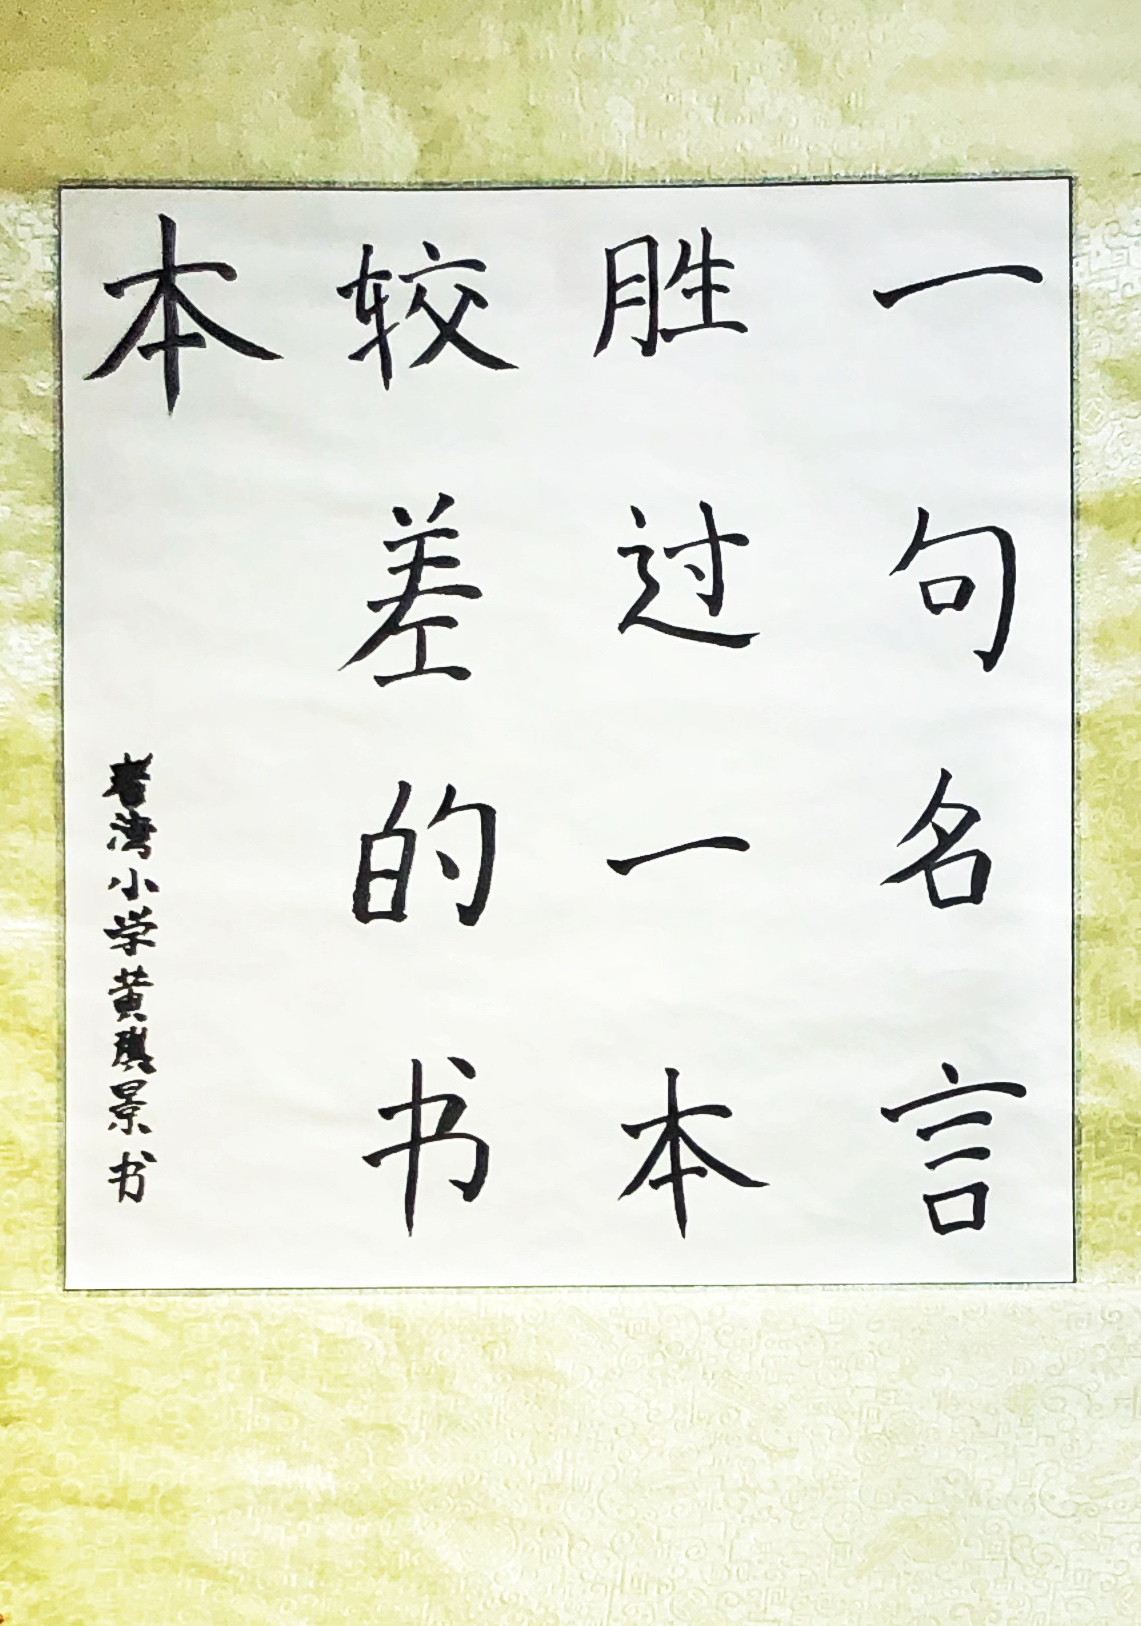 一句名言
胜过一本
较差的书
本
湾小学黄景书